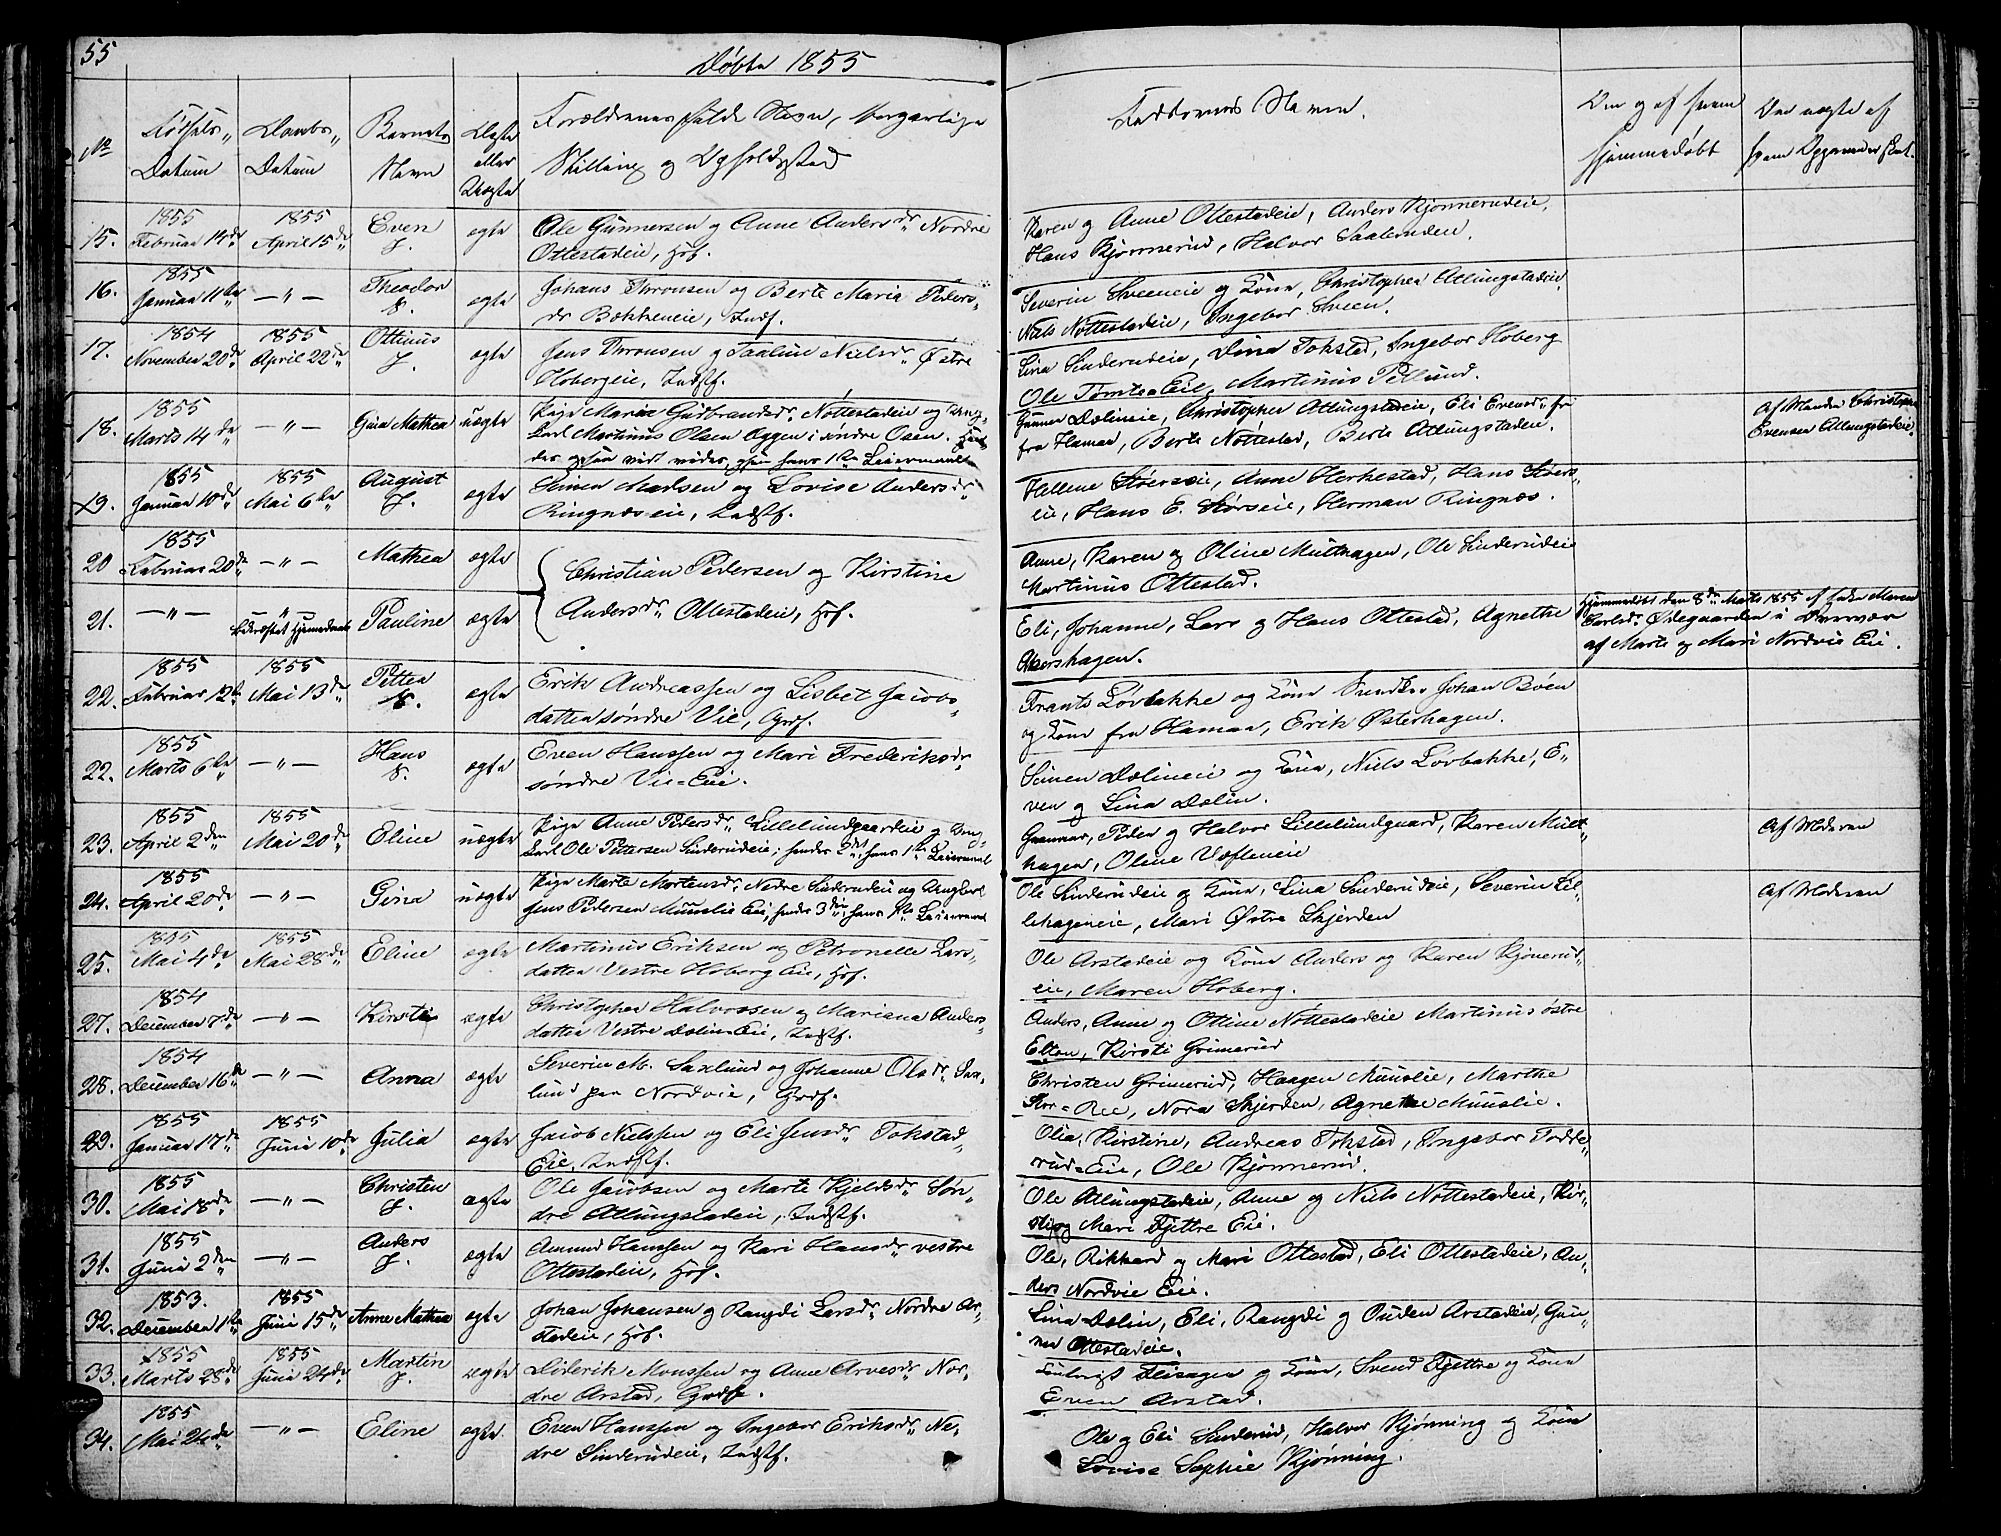 55
Døbte 1855
No
Fødsels-
Datum
Daabs-
Datum
Barnets
Navn
Ægte
eller
Uægte
Forældrenes fulde Navn, Borgerlige
Stilling og Opholdssted
Faddernes Navne.
Om og af hvem
hjemmedøbt
Om uægte af
hvem
15.
1855
Februar 14de
1855
April 15de
Even
J.
ægte
Ole Gunnersen og Anne Andersdr. Nordre
Ottestadeie, Hf.
Karen og Anne Ottestadeie, Anders Kjønnerudeie,
Hans Kjønnerud, Halvor Saalunden.
16.
1855
Januar 11te
— " —
Theodor
ægte
Johans Thronsen og Berte Maria Peders-
dr Bakkeneie, Indst.
Severin Sveeneie og Kone, Christopher Atlungstadeie,
Niels Nøttestadeie, Ingebor Sveen.
17.
1854
November 20de
1855
April 22de
Ottinus
J.
ægte
Jens Thronsen og Paaline Nielsdr. Østre
Hobergeie, Indstf.
Lina Sinderudeie, Dina Tokstad, Ingebor Hoberg
Ole Tomter Eie, Martinus Pellund.
18.
1855
Marts 14de
— " —
Gina Mathea
uægte
Pige Maria Gudbrandsdr. Nøttestadeie og Ung-
karl Martinus Olsen Oggen i søndre Osen.
Gunner Dælineie, Christopher Atlungstadeie, Eli Evensdr. fr
fra Hamar, Berte Nøttestad, Berte Atlungstadeie.
Af Manden Christopher
Evensen Atlungstadeie.
19.
1855
Januar 10de
1855
Mai 6te
August
J.
ægte
Simen Madsen og Lovise Andersdr.
Ringnæseie, Indstf.
Hellene Størseie, Anne Herkestad, Hans Størs-
eie, Hans E. Størseie, Herman Ringnæs.
20
1855
Februar 20de
— " —
Mathea
ægte
Christian Pedersen og Kirstine
Andersdr. Ottestadeie, Hf.
Anne, Karen og Oline Mutthagen, Ole Sinderudeie
Martinus Ottestad.
21.
— " —
— " —
bekræftet Hjemmedaab
Pauline
ægte
Eli, Johanne, Lars og Hans Ottestad, Agnethe
Akershagen.
Hjemmedøbt den 8de Marts 1855 af Maren
Carlsdr. Ødegaarden i
af Marte og Mari Nordvie Eie.
22.
1855
Februar 12te
1855
Mai 13de
Pettea
ægte
Erik Andreassen og Lisbet Jacobs-
datter søndre Vie, Grdf.
Frants Løvbakke og Kone Johan Bøen
og Kone fra Hamar, Erik Østerhagen.
22.
1855
Marts 6te
— " —
Hans
ægte
Even Hanssen og Mari Frederiksdr.
søndre Vie-Eie.
Simen Dælineie og Kone, Niels Løvbakke, E-
ven og Lina Dælin.
23.
1855
April 2den
1855
Mai 20de
Eline
uægte
Pige Anne Pedersdr. Lillelundgaardeie og Ung-
karl Ole Pettersen Sinderudeie; hendes 2det, hans 1ste Leiermaal
Gunnar, Peder og Halvor Lillelundgaard, Karen Mutt-
hagen, Oline Væfleneie
Af Moderen
24.
1855
April 20de
— " —
Gina
uægte
Pige Marte Mortensdr. Nedre Sinderudeie og Ungkarl
Jens Pedersen Muuslie Eie, hendes 3die, hans 1ste Leiermaal
Ole Sinderudeie og Kone, Lina Sinderudeie, Severin Lil-
lehageneie, Mari Østre Skjerden
Af Moderen
25.
1855
Mai 4de
1855
Mai 28de
Eline
ægte
Martinus Eriksen og Petronelle Lars-
datter Vestre Hoberg Eie, Hf.
Ole Arstadeie og Kone Anders og Karen Kjønerud-
eie, Maren Hoberg.
27.
1854
December 7de
— " —
Kirsti
ægte
Christopher Halvorsen og Mariana Anders-
datter Vestre Dælin-Eie, Indstf.
Anders, Anne og Ottine Nøttestadeie Martinus østre
Elton, Kirsti Grimerud
28.
1854
December 16de
— " —
Anna
ægte
Severin M. Saxlund og Johanne Olsdr. Sax-
lund paa Nordvie, Grdf.
Christen Grimerud, Haagen Muuslie, Marthe
Stor-Ree, Nora Skjerden, Agnethe Muuslie.
29.
1855
Januar 17de
1855
Juni 10de
Julia
ægte
Jacob Nielssen og Eli Jensdr. Tokstad
Eie, Indstf.
Olia, Kirstine, Andreas Tokstad, Ingebor Todde-
rud-Eie, Ole Kjønnerud.
30.
1855
Mai 18de
— " —
Christen
J.
ægte
Ole Jacobsen og Marte Kjeldsdr. Søn-
dre Atlungstadeie, Indstf.
Ole Atlungstadeie, Anne og Niels Nøttestadeie, Kir-
sti og Mari Fjettre Eie.
31.
1855
Juni 2den
— " —
Anders
J.
ægte
Amund Hanssen og Kari Hansdr. vestre
Ottestadeie, Hf.
Ole, Rikkard og Mari Ottestad, Eli Ottestadeie, An-
ders Nordvie Eie.
32.
1853.
December 1ste
1855
Juni 15de
Anne Mathea
ægte
Johan Johansen og Rangdi Larsdr. Nordre Ar-
stadeie, Hf.
Lina Dælin, Eli, Rangdi og Ouden Arstadeie, Gun-
ner Ottestadeie.
33.
1855
Marts 28de
1855
Juni 24de
Martin
J.
ægte
Diderik Monssen og Anne Arvesdr. Nor-
dre Arstad, Grdf.
og Kone, Svend Fjettre og Kone
Even Arstad.
34.
1855
Mai 24de
— " —
Eline
ægte
Even Hanssen og Ingebor Eriksdr. Ne-
dre Sinderudeie, Indstf.
Ole og Eli Sinderud, Halvor Kjønning og Kone
Lovise Sophie Kjønning.